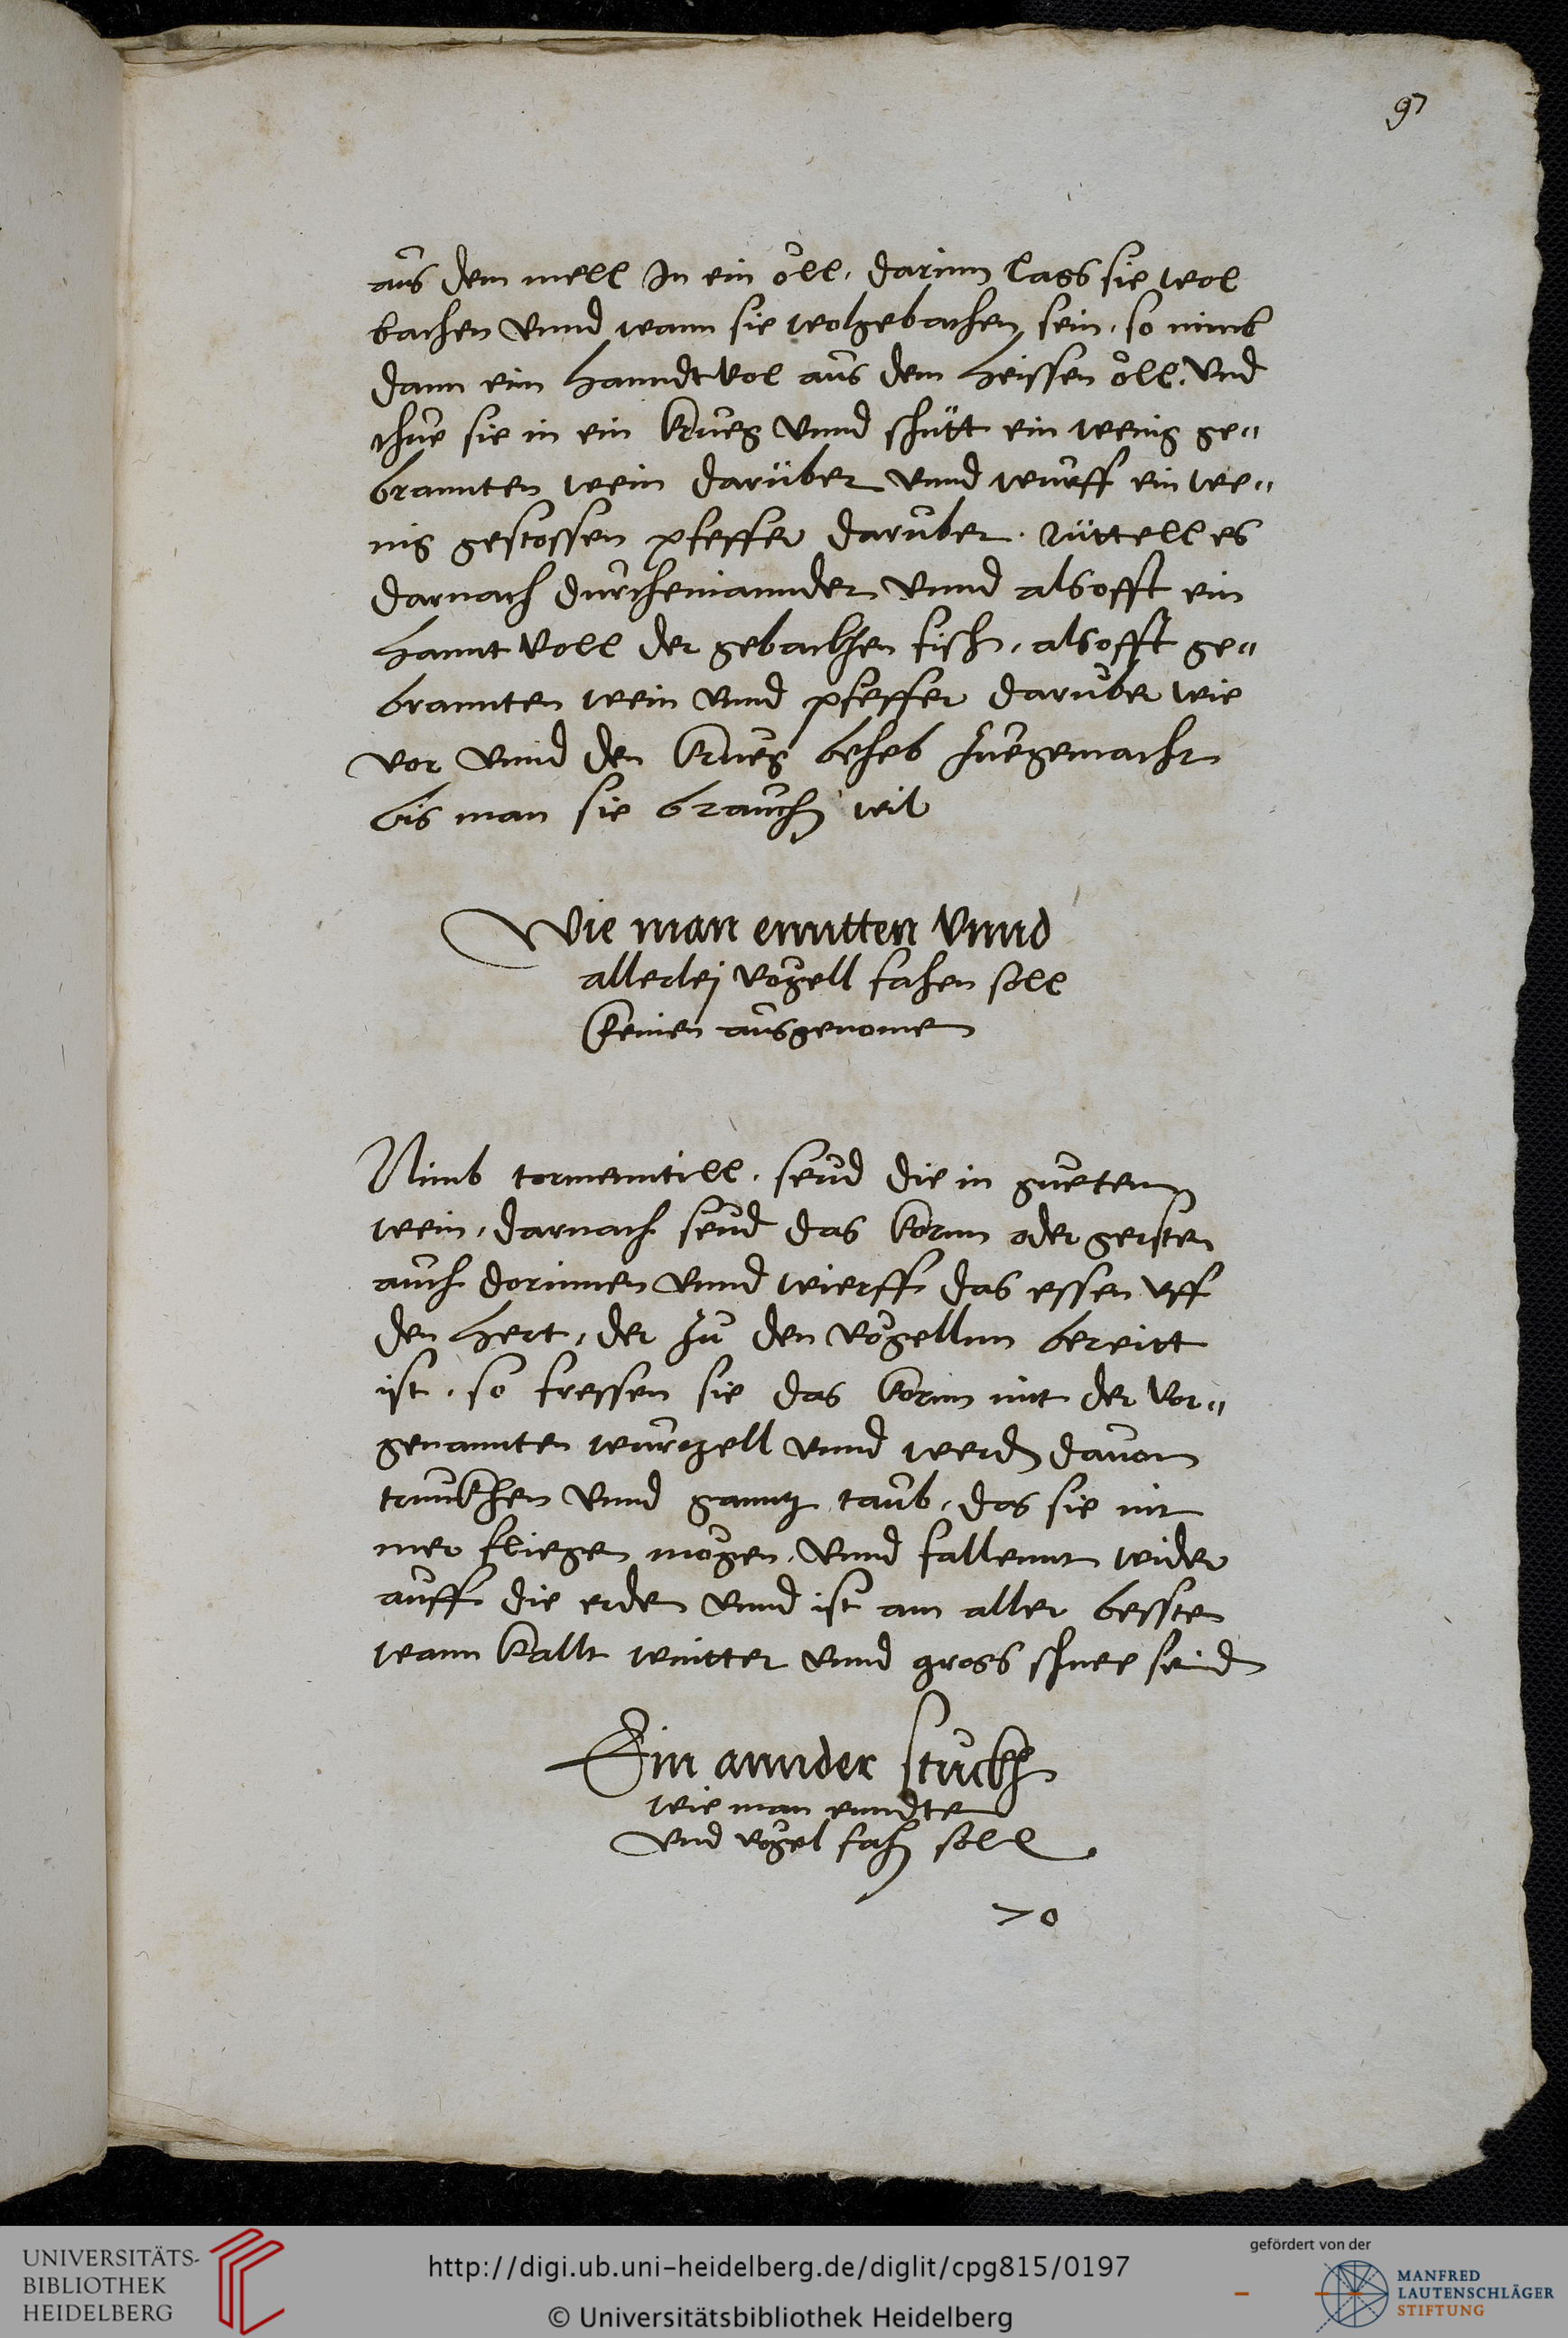 97
aus dem mell In ein öll, darinn lass sie wol
bachen vnnd wann sie wolgebachen sein, so nimb
dann ein hanndtvol aus dem heissen öll, vnd
thue sie in ein krueg vnnd schütt ein wenig ge„
brannten wein darüber vnnd wurff ein we„
nig gestossen pfeffer daruber. rüttell es
darnach durcheinannder vnnd alsofft ein
hannt voll der gebackhen fisch, alsofft ge„
brannten wein vnnd pfeffer daruber wie
vor vnnd den krueg beheb zuegemacht
bis man sie brauchen wil
Wie man ennten vnnd
allerlej vögell fahen soll
keinen ausgenomen
Nimb tormenntill, seud die in guetem
wein, darnach seud das kornn oder gersten
auch dorinnen vnnd wierff das essen vff
den hert, der zu den vögellnn bereitt
ist, so fressen sie das kornn mit der vor„
genannten wurtzell vnnd werden dauon
trunckhen vnnd ganntz taub, das sie nit
mer fliegen mögen, vnnd fallennt wider
auff die erden vnnd ist am aller bessten
wann kallt winter vnnd gross schnee seind
Ein annder stuckh
wie man enndten
vnd vögel fahen soll
>o
UNIVERSITÄTS-
BIBLIOTHEK
HEIDELBERG
http://digi.ub.uni-heidelberg.de/diglit/cpg815/0197
© Universitätsbibliothek Heidelberg
gefördert von der
MANFRED
LAUTENSCHLÄGER
STIFTUNG